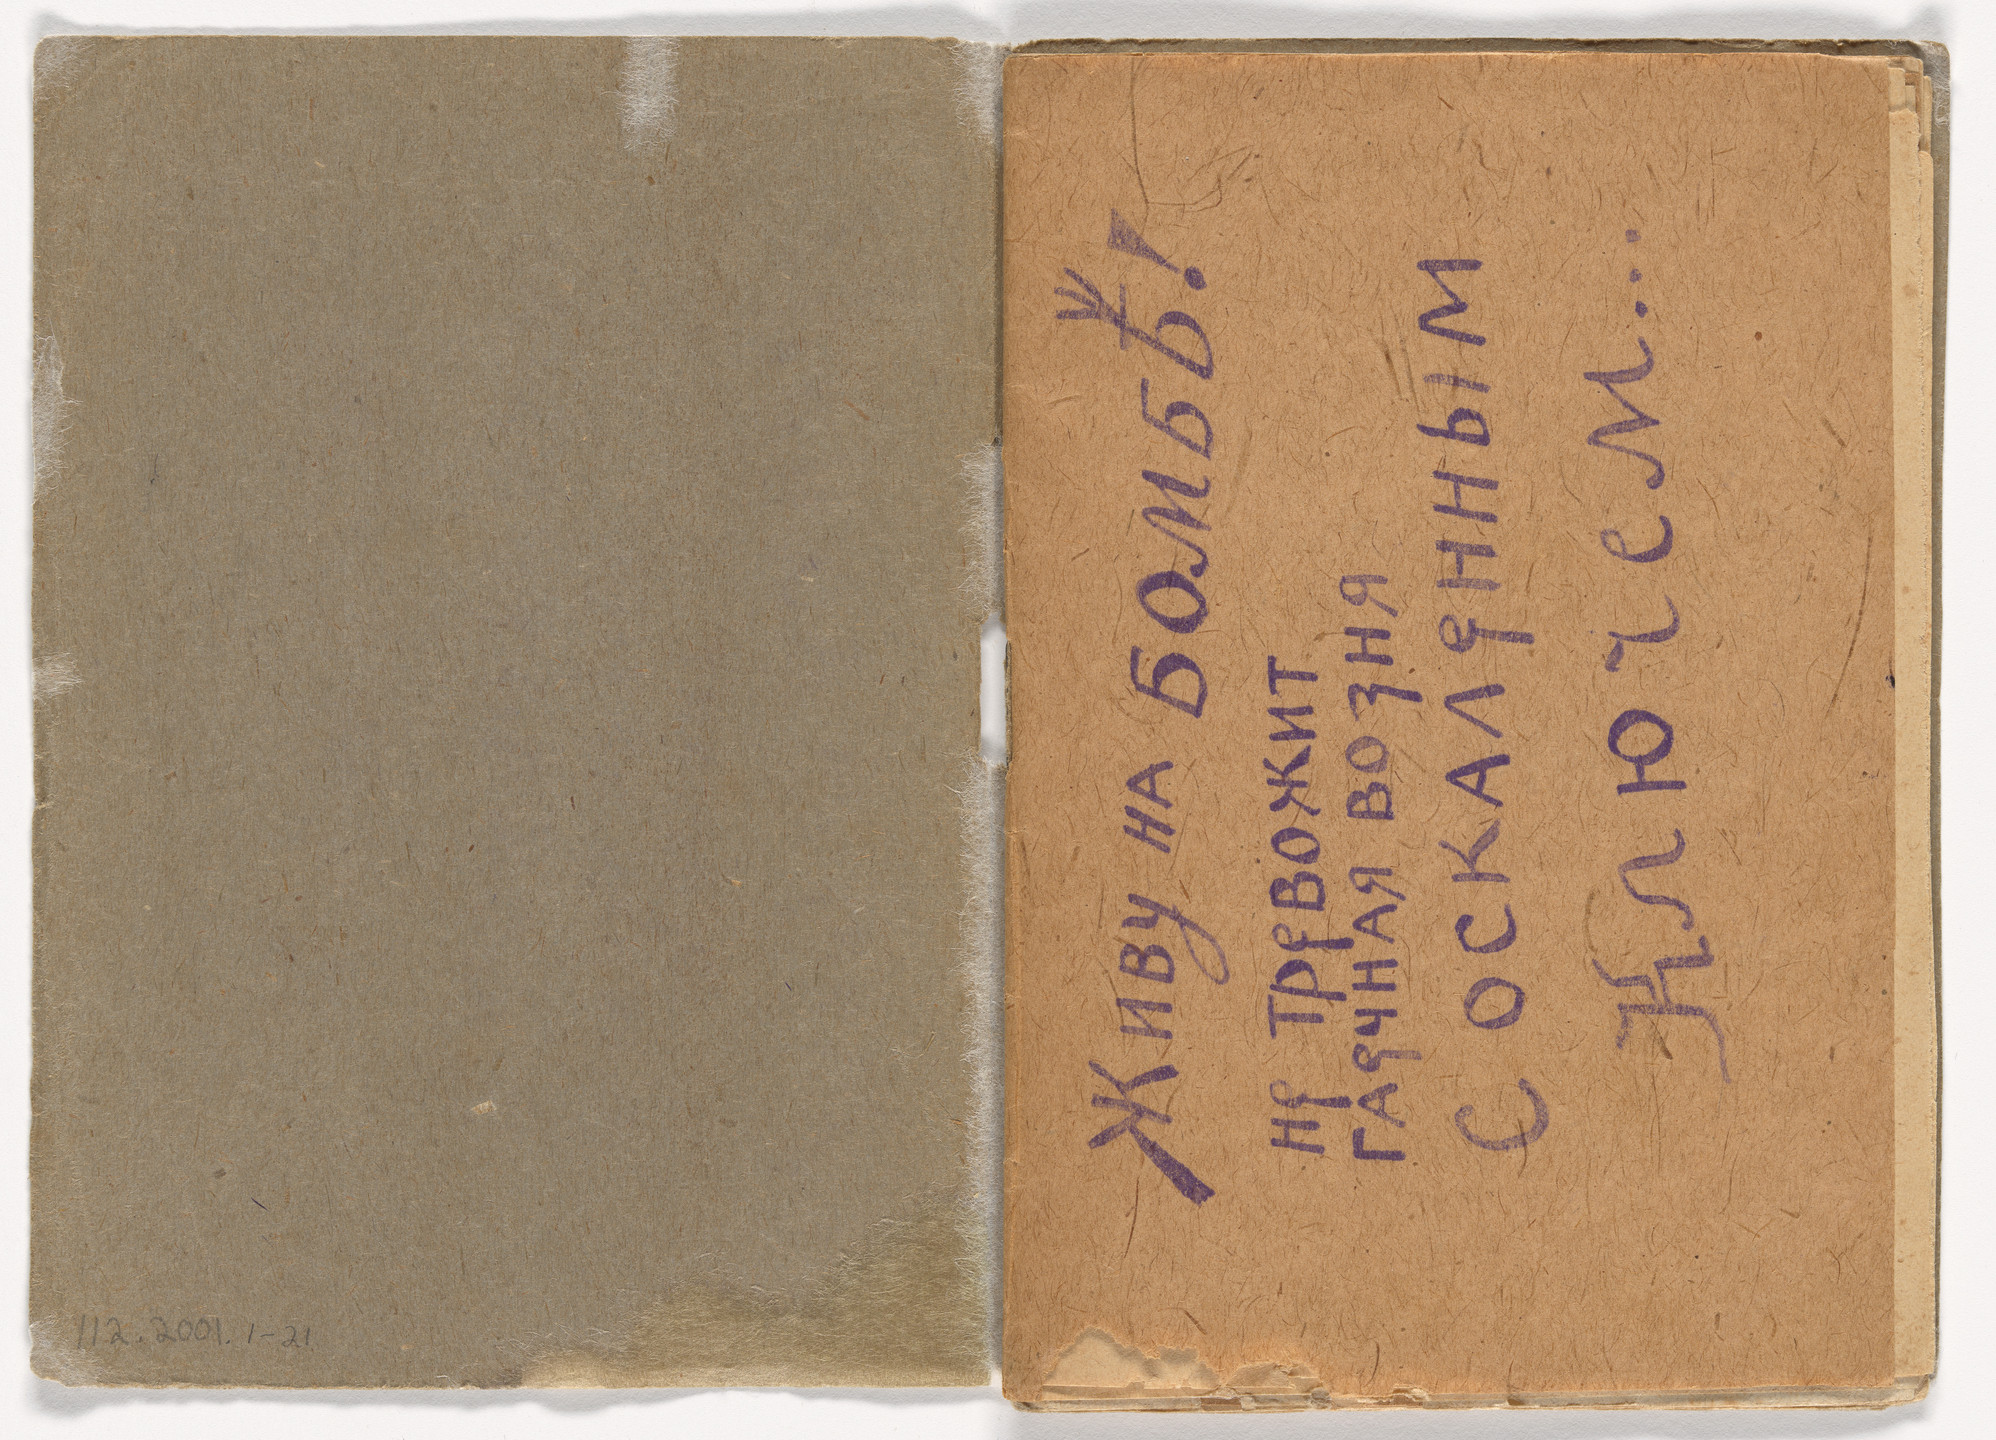 112.2001.1-21
Живу на БОМБѢ!
не тревожит
гаечная возня
с оскаленным
ключем...